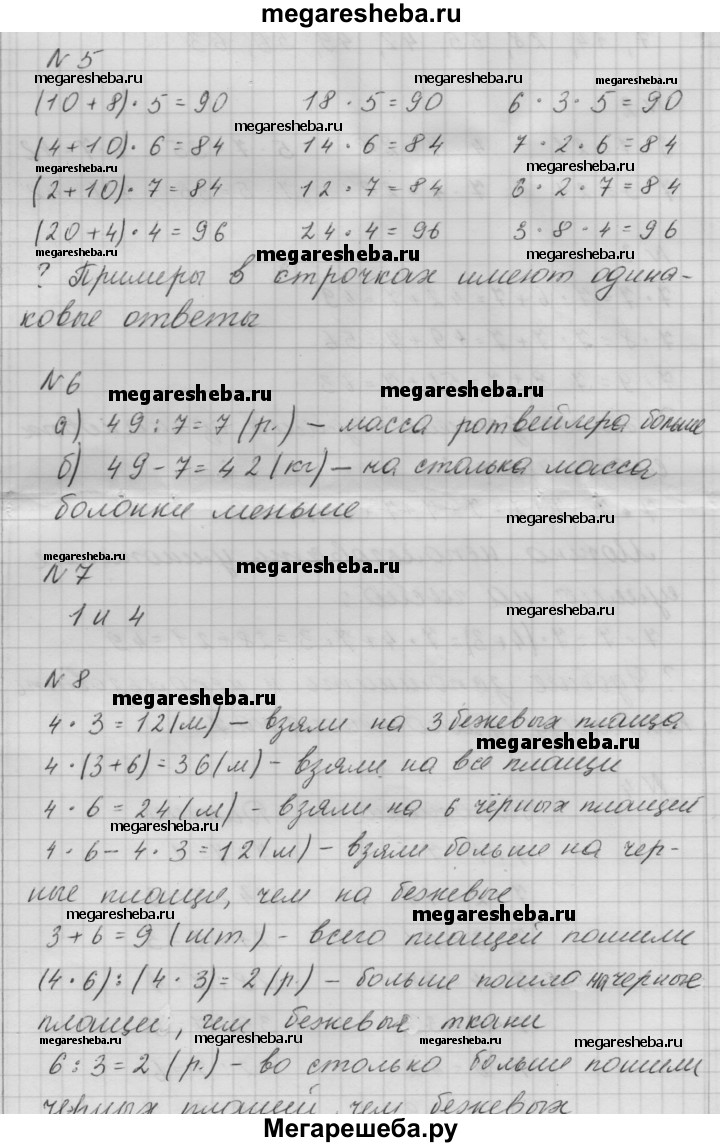 megaresheba.ru
N 5
megaresheba.ru megaresheba.ru megaresheba.ru
(10+8)·5=90 18·5=90 6·3·5=90
megaresheba.ru
(4+10)·6=84 14·6=84 7·2·6=84
megaresheba.ru megaresheba.ru
(2+10)·7=84 12·7=84 6·2·7=84
(20+4)·4=96 24·4=96 3·8·4=96
megaresheba.ru megaresheba.ru
? Примеры в строчках имеют одина-
ковые ответы
N 6
megaresheba.ru megaresheba.ru
а) 49:7=7(р.) – масса ротвейлера больше
б) 49-7=42(кг) – на столька масса
болонки меньше megaresheba.ru
megaresheba.ru megaresheba.ru
N 7
1 и 4 megaresheba.ru
N 8
megaresheba.ru
4·3=12(м) – взяли на 3 бежевых плаща
megaresheba.ru
4·(3+6)=36(м) – взяли на все плащи
4·6=24(м) - взяли на 6 чёрных плащей
megaresheba.ru megaresheba.ru
4·6-4·3=12(м) – взяли больше на чер-
ные плащи, чем на бежевые
megaresheba.ru megaresheba.ru
3+6=9(шт.) - всего плащей пошили
(4·6):(4·3)=2(р.) – больше пошло на черные
плащи, чем бежевые ткани
megaresheba.ru megaresheba.ru megaresheba.ru
6:3=2(р.) – во столько больше пошили
черных плащей, чем бежевых
Мегарешеба.ру